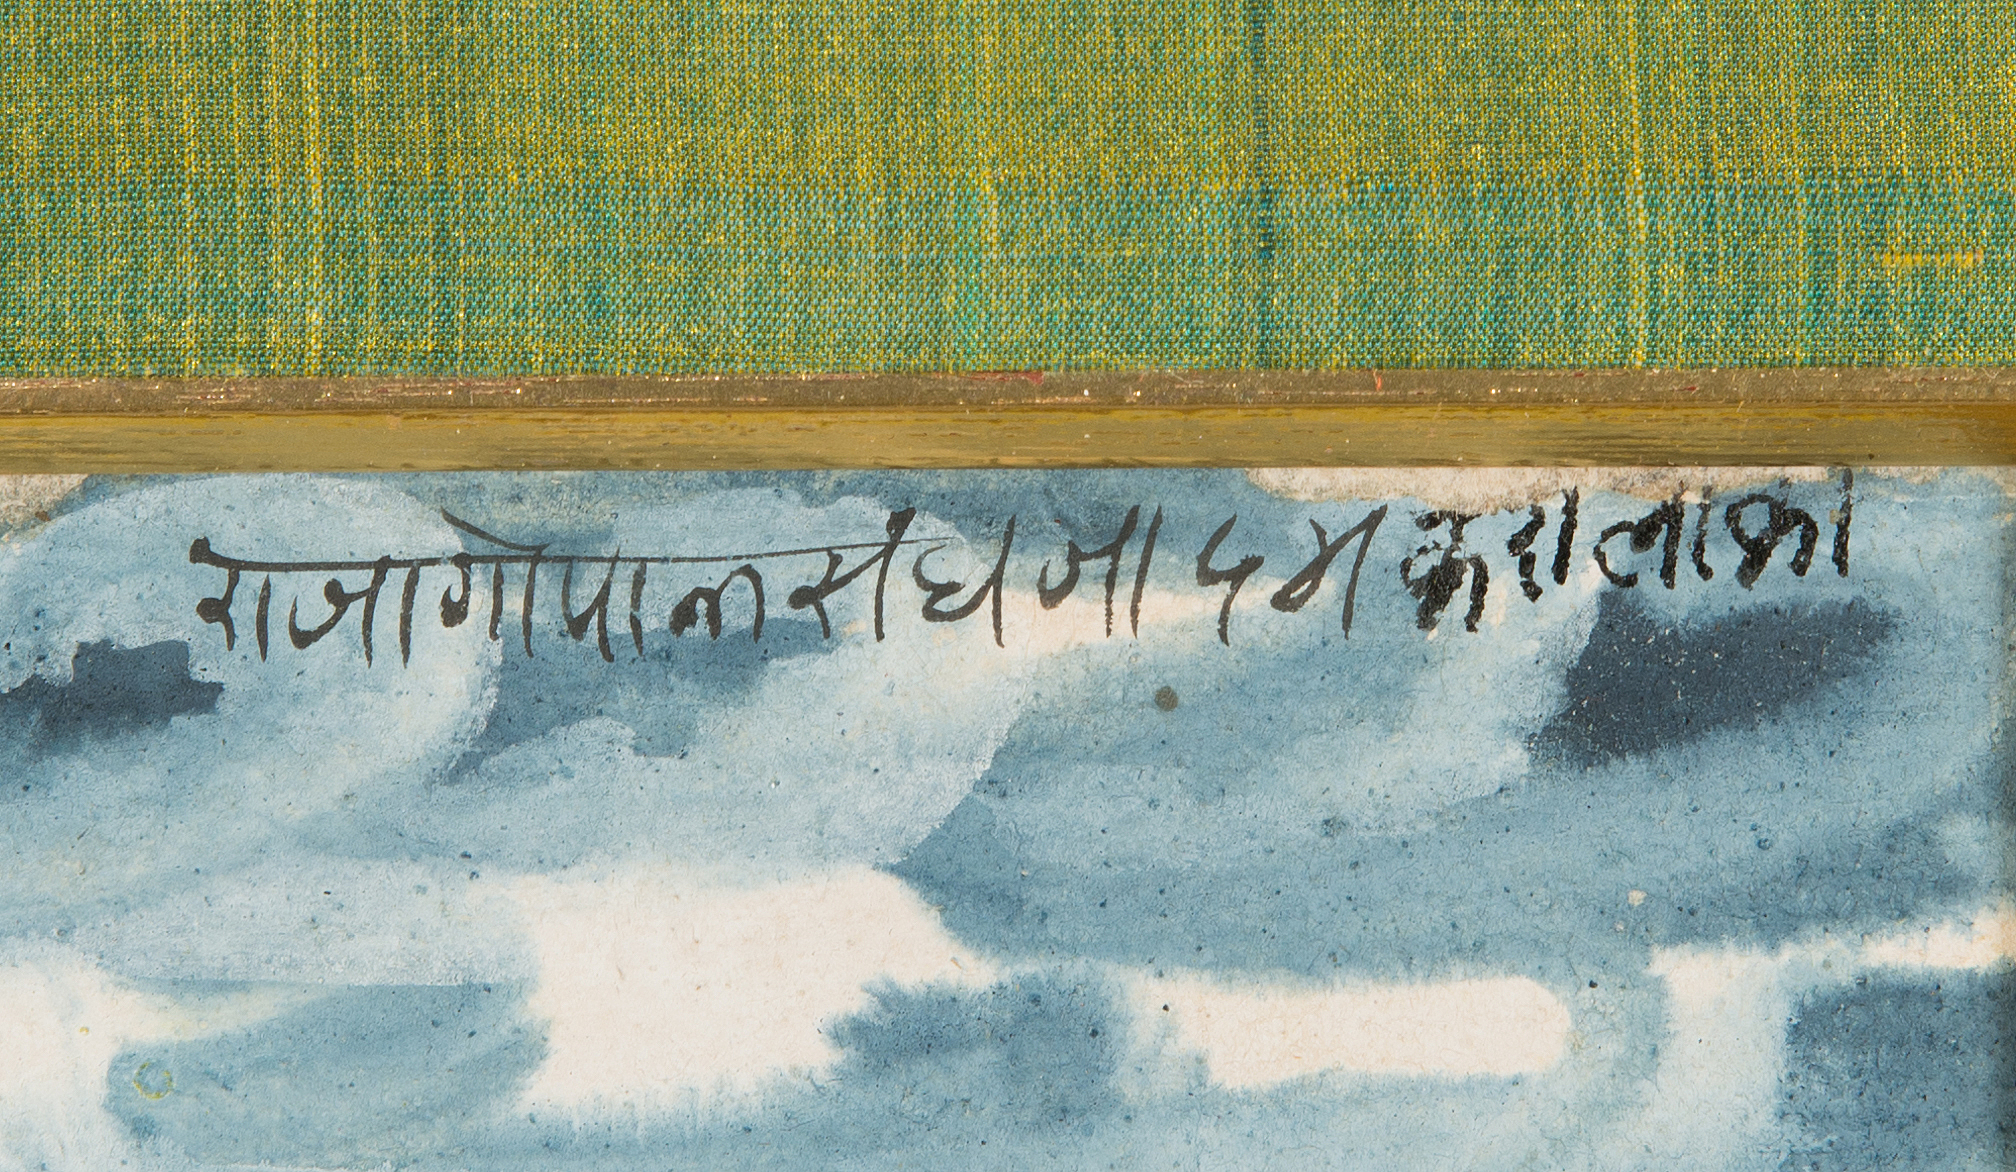 राजा गोपाल संघ जादम करालाका